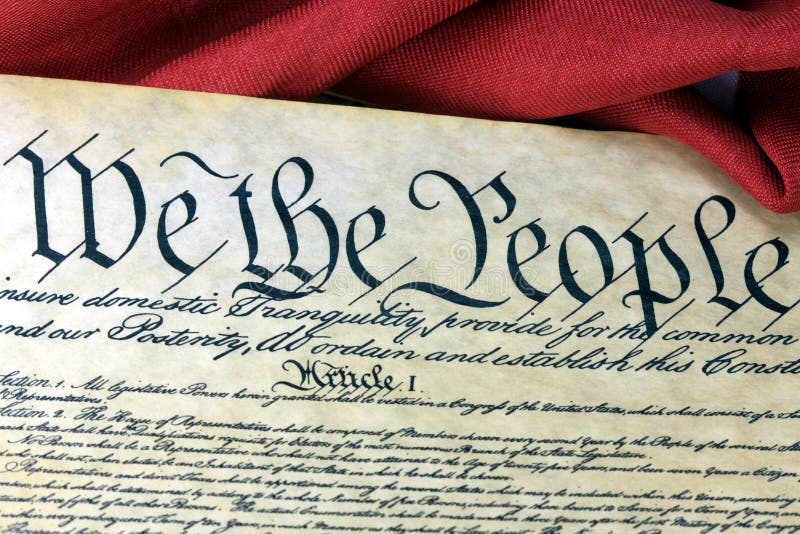 We the People
insure domestic Tranquility, provide for the common
and our Posterity, do ordain and establish this Const
Article I.
Section. 1. All legislative Powers herein granted shall be vested in a Congress of the United States, which shall consist of a Sena
of Representatives.
Section. 2. The House of Representatives shall be composed of Members chosen every second Year by the People of the several Stat
each State shall have Qualifications requisite for Electors of the most numerous Branch of the State Legislature.
No Person shall be a Representative who shall not have attained to the Age of twenty five Years, and been seven Years a Citizen
and who shall not, when elected, be an Inhabitant of that State in which he shall be chosen.
Representatives and direct Taxes shall be apportioned among the several States which may be included within this Union, according
Numbers, which shall be determined by adding to the whole Number of free Persons, including those bound to Service for a Term of Years
three fifths of all other Persons. The actual Enumeration shall be made within three Years after the first Meeting of the Congress
within every subsequent Term of ten Years, in such Manner as they shall by Law direct.